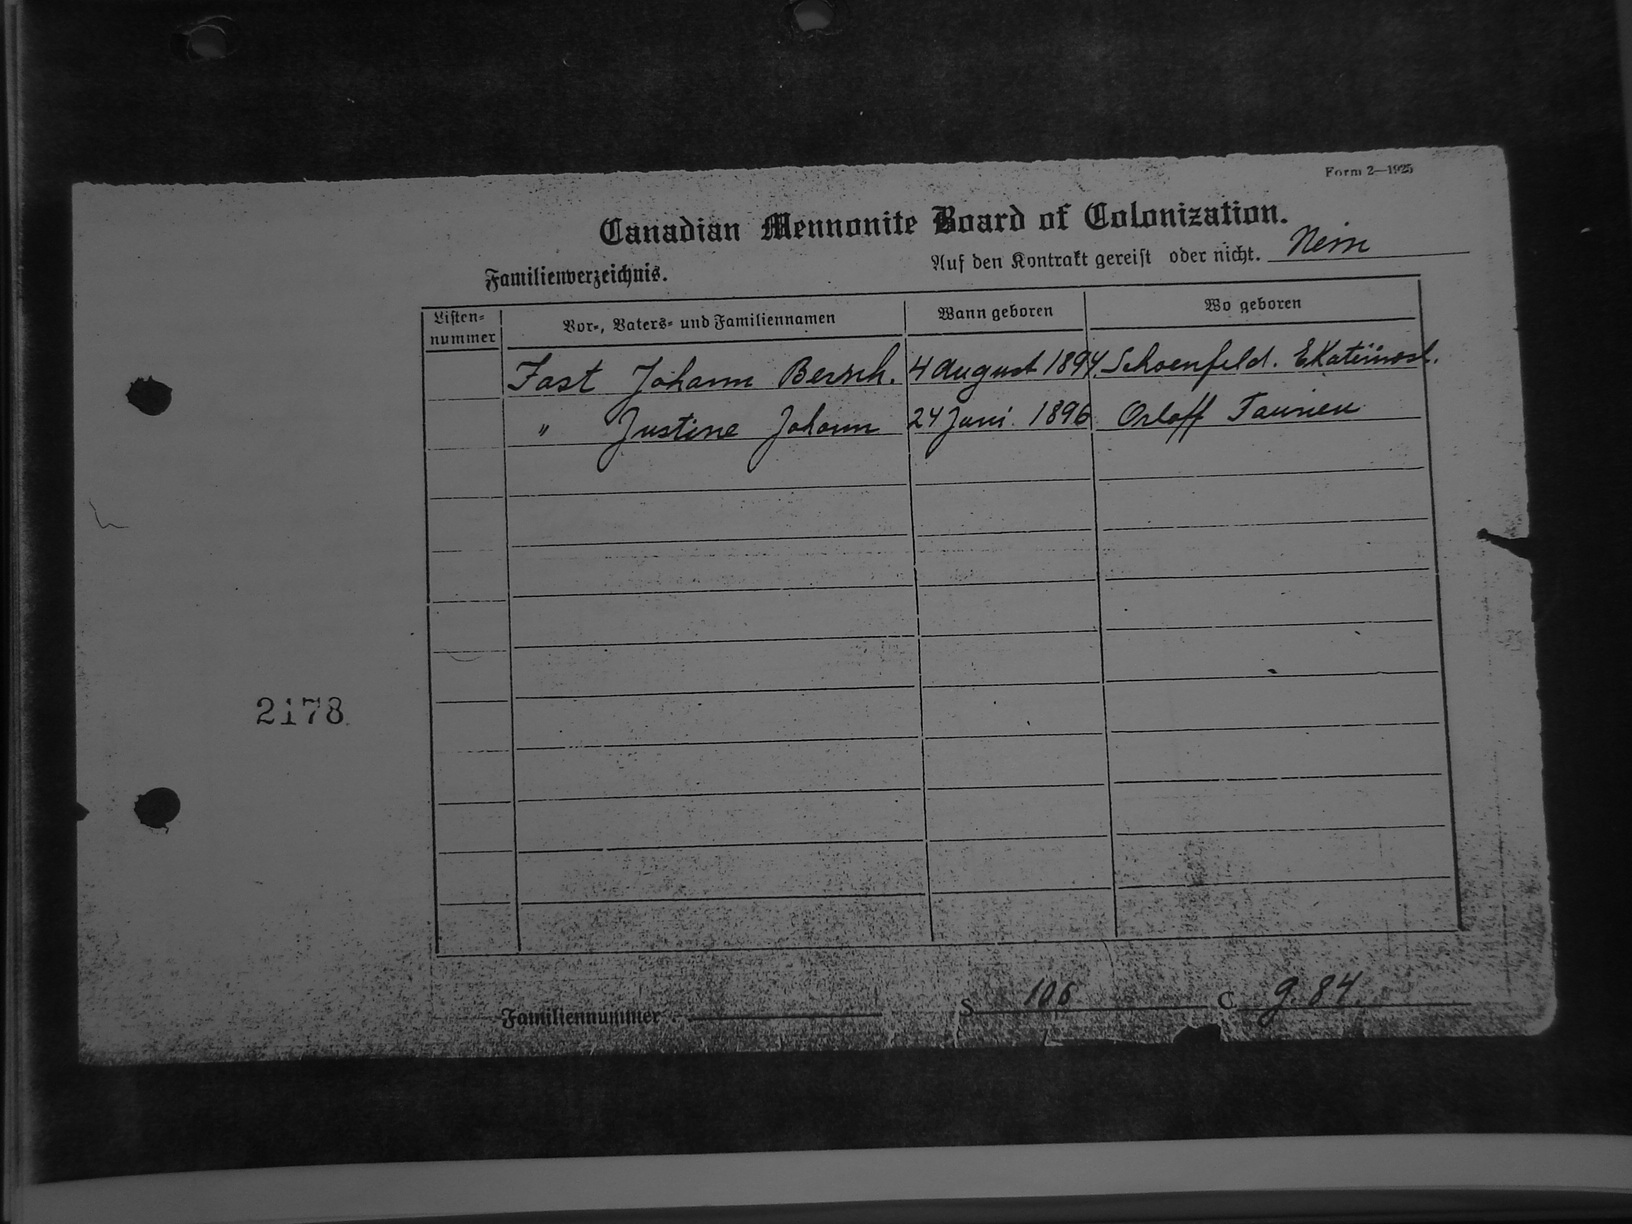 Form 2—1925
Canadian Mennonite Board of Colonization.
Familienverzeichnis.
Auf den Kontrakt gereist oder nicht. Nein
Listen=nummer
Vor=, Vaters= und Familiennamen
Wann geboren
Wo geboren
Fast Johann Bernh. 4 August 1894. Schoenfeld. Ekaterinosl.
" Justine Johann 24 Juni. 1896 Orloff Taurien
2178
Familiennummer S 106 C 9.84.